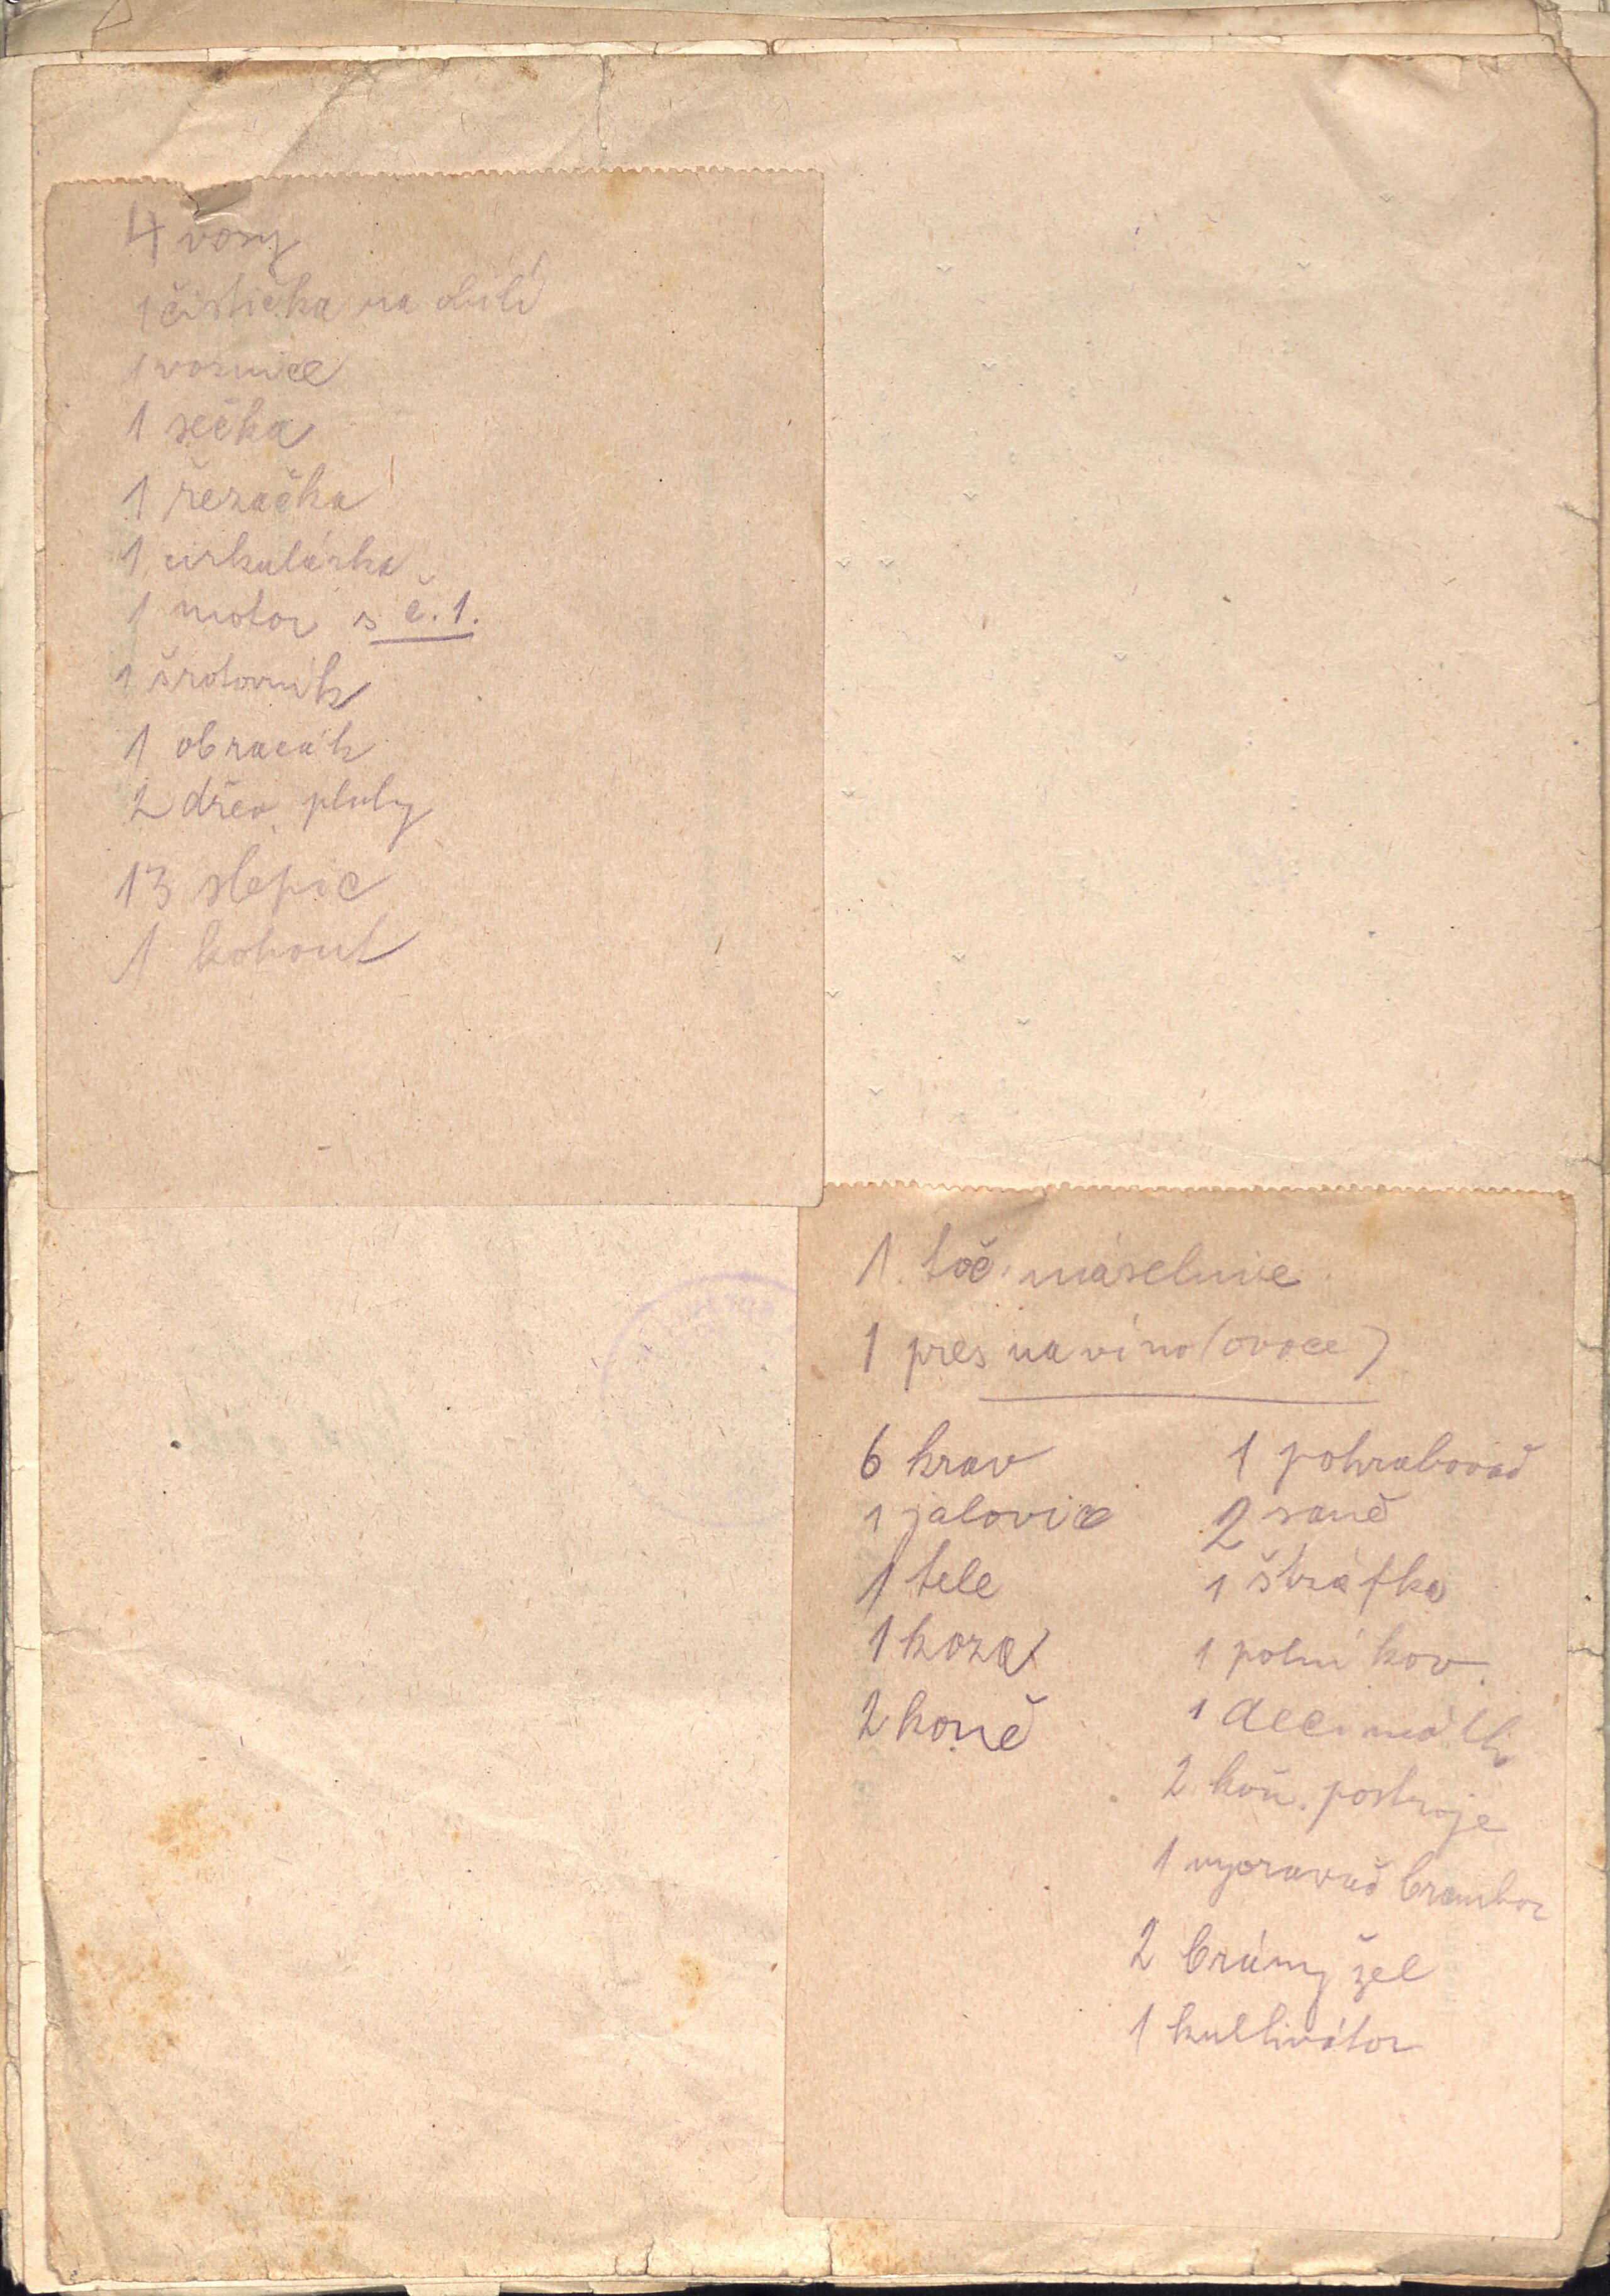 4 vozy
1 čistička na obilí
1 voznice
1 sečka
1 řezačka
1 cirkulárka
1 motor s č. 1.
1 šrotovník
1 obracák
2 dřev. pluhy
13 slepic
1 kohout
1. toč. máselnice
1 pres na víno (ovoce)
6 krav
1 jalovice
1 tele
1 koza
2 koně
1 pohrabovač
2 saně
1 štráfka
1 polní kov.
1 decimálka
2 koň. postroje
1 vyoravač brambor
2 brány žel
1 kultivátor